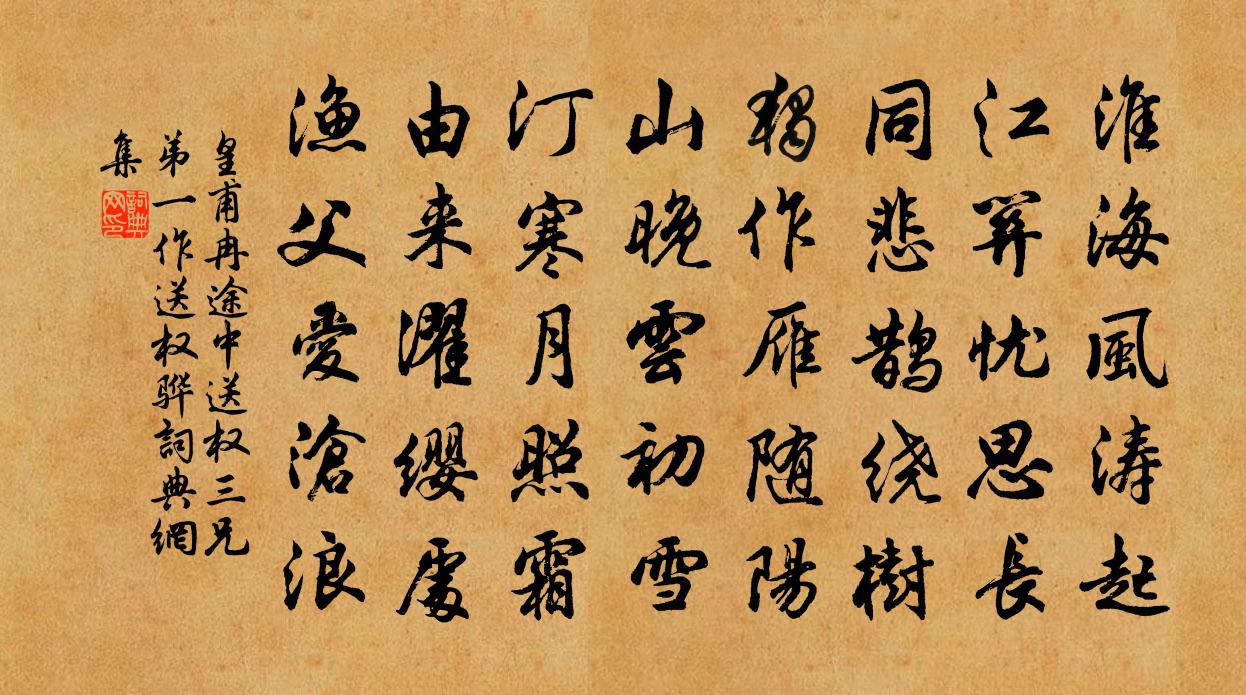 淮海風涛起
江關忧思長
同悲鹊绕樹
獨作雁随陽
山晚雲初雪
汀寒月照霜
由来濯缨處
渔父愛滄浪
皇甫冉途中送权三兄
弟一作送权骅詞典網
集
詞典網印